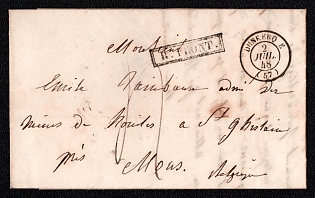 Monsieur
DUNKERQUE
2
JUIL.
48
(57)
R. FRONT.
Emile Rainbeaux adm. des
mines de houilles a St Ghislain
près Mons.
Belgique